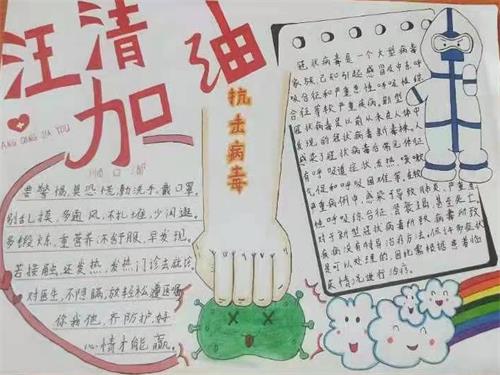 汪清
加油
WANG QING JIA YOU
抗击病毒
要警惕,莫恐慌,勤洗手,戴口罩,
别乱摸,多通风,不扎堆,少闲逛,
多锻炼,重营养,不舒服,早发现,
若接触,还发热,发热门诊去就诊,
对医生,不隐瞒,放轻松,遵医嘱
你我他,齐防护,好
心情才能赢。
冠状病毒是一个大型病毒
家族,已知引起感冒及中东呼
吸综合征和严重急性呼吸
综合征等较严重疾病。新型
冠状病毒是以前从未在人体中
发现的冠状病毒新毒株。人
感染了冠状病毒后常见体征
有呼吸道症状、发热、咳嗽、
气促和呼吸困难等。在较
严重病例中,感染可导致肺炎、严重急
性呼吸综合征、肾衰竭,甚至死亡。
对于新型冠状病毒所致
疾病没有特异治疗方法。但许多症状
是可以处理的,因此需根据患者临
床情况进行治疗。